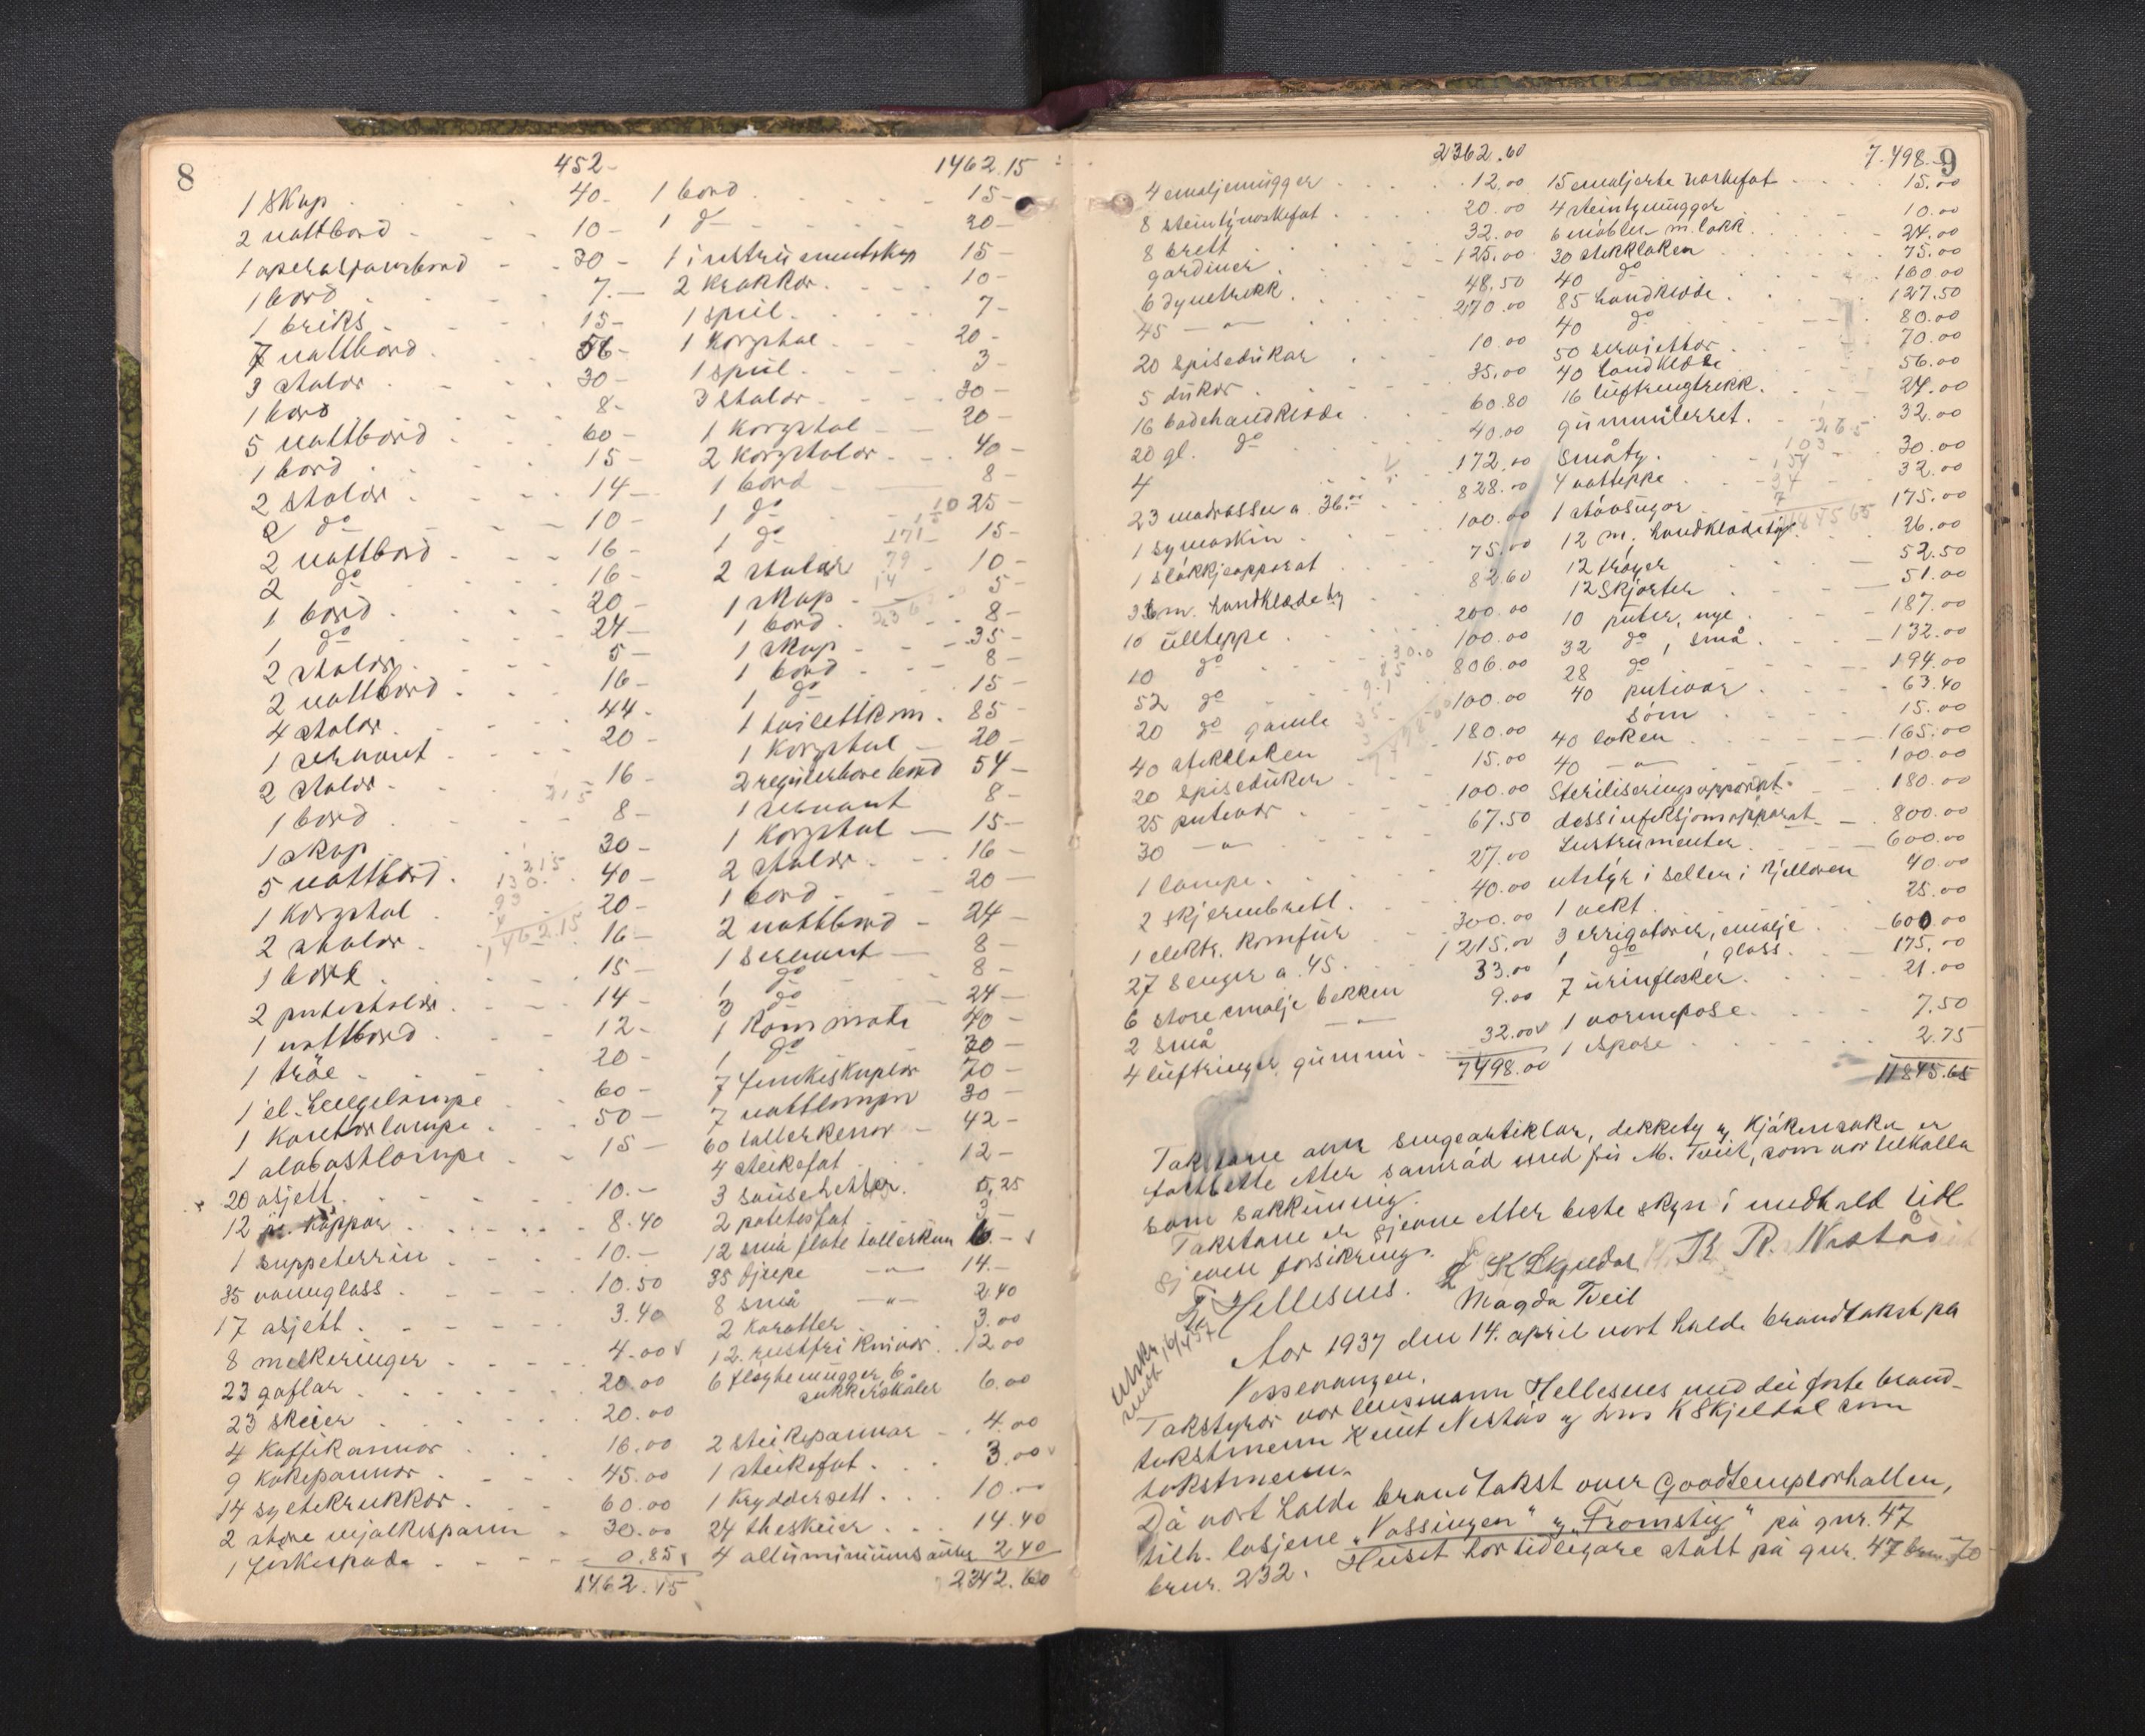 8
452-
1 Skap 40-
2 nattbord 10-
1 operasjonsbord 30-
1 bord 7.-
1 briks 15-
7 nattbord 56-
3 stolar 30-
1 bord 8-
5 nattbord 60-
1 bord 15-
2 stolar 14-
2 do 10-
2 nattbord 16-
2 do 16-
1 bord 20-
1 do 24-
2 stolar 5-
2 nattbord 16-
4 stolar 44-
1 servant 20-
2 stolar 16-
1 bord 8-
1 skap 30-
5 nattbord 40-
1 korgstol 20-
2 stolar 16-
1 bord 15-
2 putestolar 14-
1 nattbord 12-
1 träe 20-
1 el. hengelampe 60-
1 kontorlampe 50-
1 alabastlampe 15-
20 asjett 10.-
12 koppar 8.40
1 suppeterrin 10.-
35 vannglass 10.50
17 asjett 3.40
8 melkeringer 4.00
23 gaflar 20.00
23 skeier 20.00
4 kaffikannor 16.00
9 kokepannor 45.00
14 syltekrukkor 60.00
2 store mjølkespann 30.00
1 fiskespade 0.85
1462.15
1462.15
1 bord 15-
1 do 30-
1 instrumentskap 15-
2 krakkar 10-
1 speil 7-
1 korgstol 20-
1 speil 3-
3 stolar 30-
1 korgstol 20-
2 korgstolar 40-
1 bord 8-
1 do 25-
1 do 15-
2 stolar 10-
1 skap 5-
1 bord 8-
1 skap 35-
1 bord 8-
1 do 15-
1 toilettkom. 85-
1 korgstol 20-
2 regulerbare bord 54-
1 servant 8-
1 korgstol 15-
2 stolar 16-
1 bord 20-
2 nattbord 24-
1 servant 8-
1 do 8-
3 do 24-
1 kommode 40-
1 do 30-
7 70-
7 nattlampor 30-
60 tallerkenar 42-
4 steikefat 12-
3 5,25
2 potetesfat 3-
12 små flate tallerken 6-
35 djupe -"- 14.-
8 små -"- 2.40
2 karafler 3.00
12 rustfri knivar 12.00
6 fløytemugger, 6
sukkerskåler 6.00
2 steikepannar 4.00
1 steikefat 3.00
1 kryddersett 10.-
24 theskeier 14.40
4 2.40
2342.60
9
2362.60
4 emaljemugger 12.00
8 steintyvaskefat 20.00
8 brett 32.00
gardiner 125.00
6 dynetrekk 48.50
45 -"- 270.00
20 spisedukar 10.00
5 dukar 35.00
16 badehandklæde 60.80
20 gl. do 40.00
4 172.00
23 madrasser a 36.00 828.00
1 symaskin 100.00
1 sløkkjeapparat 75.00
36 m. handklædety 82.60
10 ullteppe 200.00
10 do 100.00
52 do 806.00
20 do gamle 100.00
40 stiklaken 180.00
20 spisedukar 15.00
25 putevar 100.00
30 -"- 67.50
1 lampe 27.00
2 skjermbrett 40.00
1 elektr. komfur 300.00
27 senger a 45. 1215.00
6 store emalje bekken 33.00
2 små -"- 9.00
4 luftringer, gummi 32.00
7498.00
7.498.-
15 emaljerte vaskefat 15.00
4 steintymugger 10.00
6 møbler m. lokk 24.00
30 stikklaken 75.00
40 do 160.00
85 handklæde 127.50
40 do 80.00
50 serviettar 70.00
40 handklæde 56.00
16 luftringtrekk 24.00
gummilerret 32.00
småty 30.00
4 vatteppe 32.00
1 støvsugar 175.00
12 m. handklædety 26.00
12 trøyer 52.50
12 skjorter 51.00
10 puter, nye 187.00
32 do, små 132.00
28 do 194.00
40 putevar 63.40
søm 15.00
40 laken 165.00
40 -"- 100.00
Steriliseringsapparat 180.00
dessinfeksjonsapparat 800.00
Instrumenter 600.00
utstyr i sellen i kjelleren 40.00
1 vekt 25.00
3 errigatorer, emalje 600.00
1 do, glass 175.00
7 urinflasker 21.00
1 varmepose 7.50
1 ispose 2.75
11845.65
Takstane over sengeartiklar, dekkety og kjøkensaker er
fastsette etter samråd med frk M. Tveit, som var tilkalla
som sakkunnig.
Takstane er gjevne etter beste skyn i medhald lidl
gjeven forsikring.
T. Hellesnes. K Skjeldal K. R. Nestås
Magda Tveit
Utskr.
sendt 16/4 37
Aar 1937 den 14. april vart halde brandtakst på
Vossevangen.
Takstyrar var lensmann Hellesnes med dei faste brand-
takstmenn Knut Nestås og Lars K Skjeldal som
takstmenn.
Då vart halde brandtakst over Goodtemplarhallen,
tilh. losjene "Vossingen" og "Fromstig" på gnr. 47
brnr. 232. Huset har tidlegare stått på gnr. 47 brnr 70